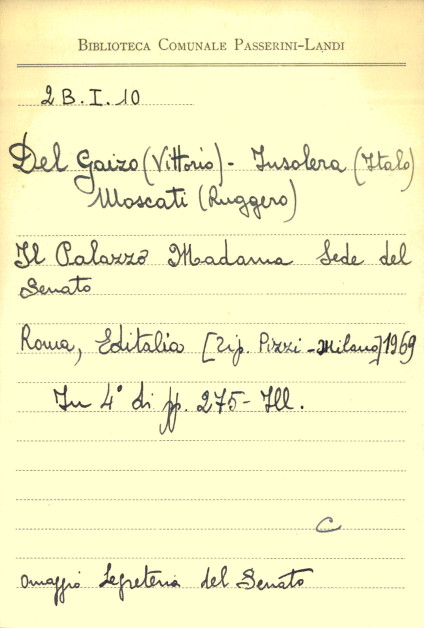 BIBLIOTECA COMUNALE PASSERINI-LANDI
2 B. I. 10
Del Gaizo (Vittorio) - Insolera (Italo)
Moscati (Ruggero)
Il Palazzo Madama Sede del
Senato
Roma, Editalia [Tip. Pizzi - Milano] 1969
In 4° di pp. 275 - Ill.
C
omaggio Segreteria del Senato